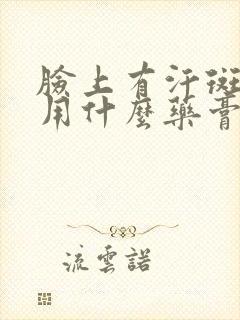 臉上有汗斑
用什麼藥膏
流雲諾